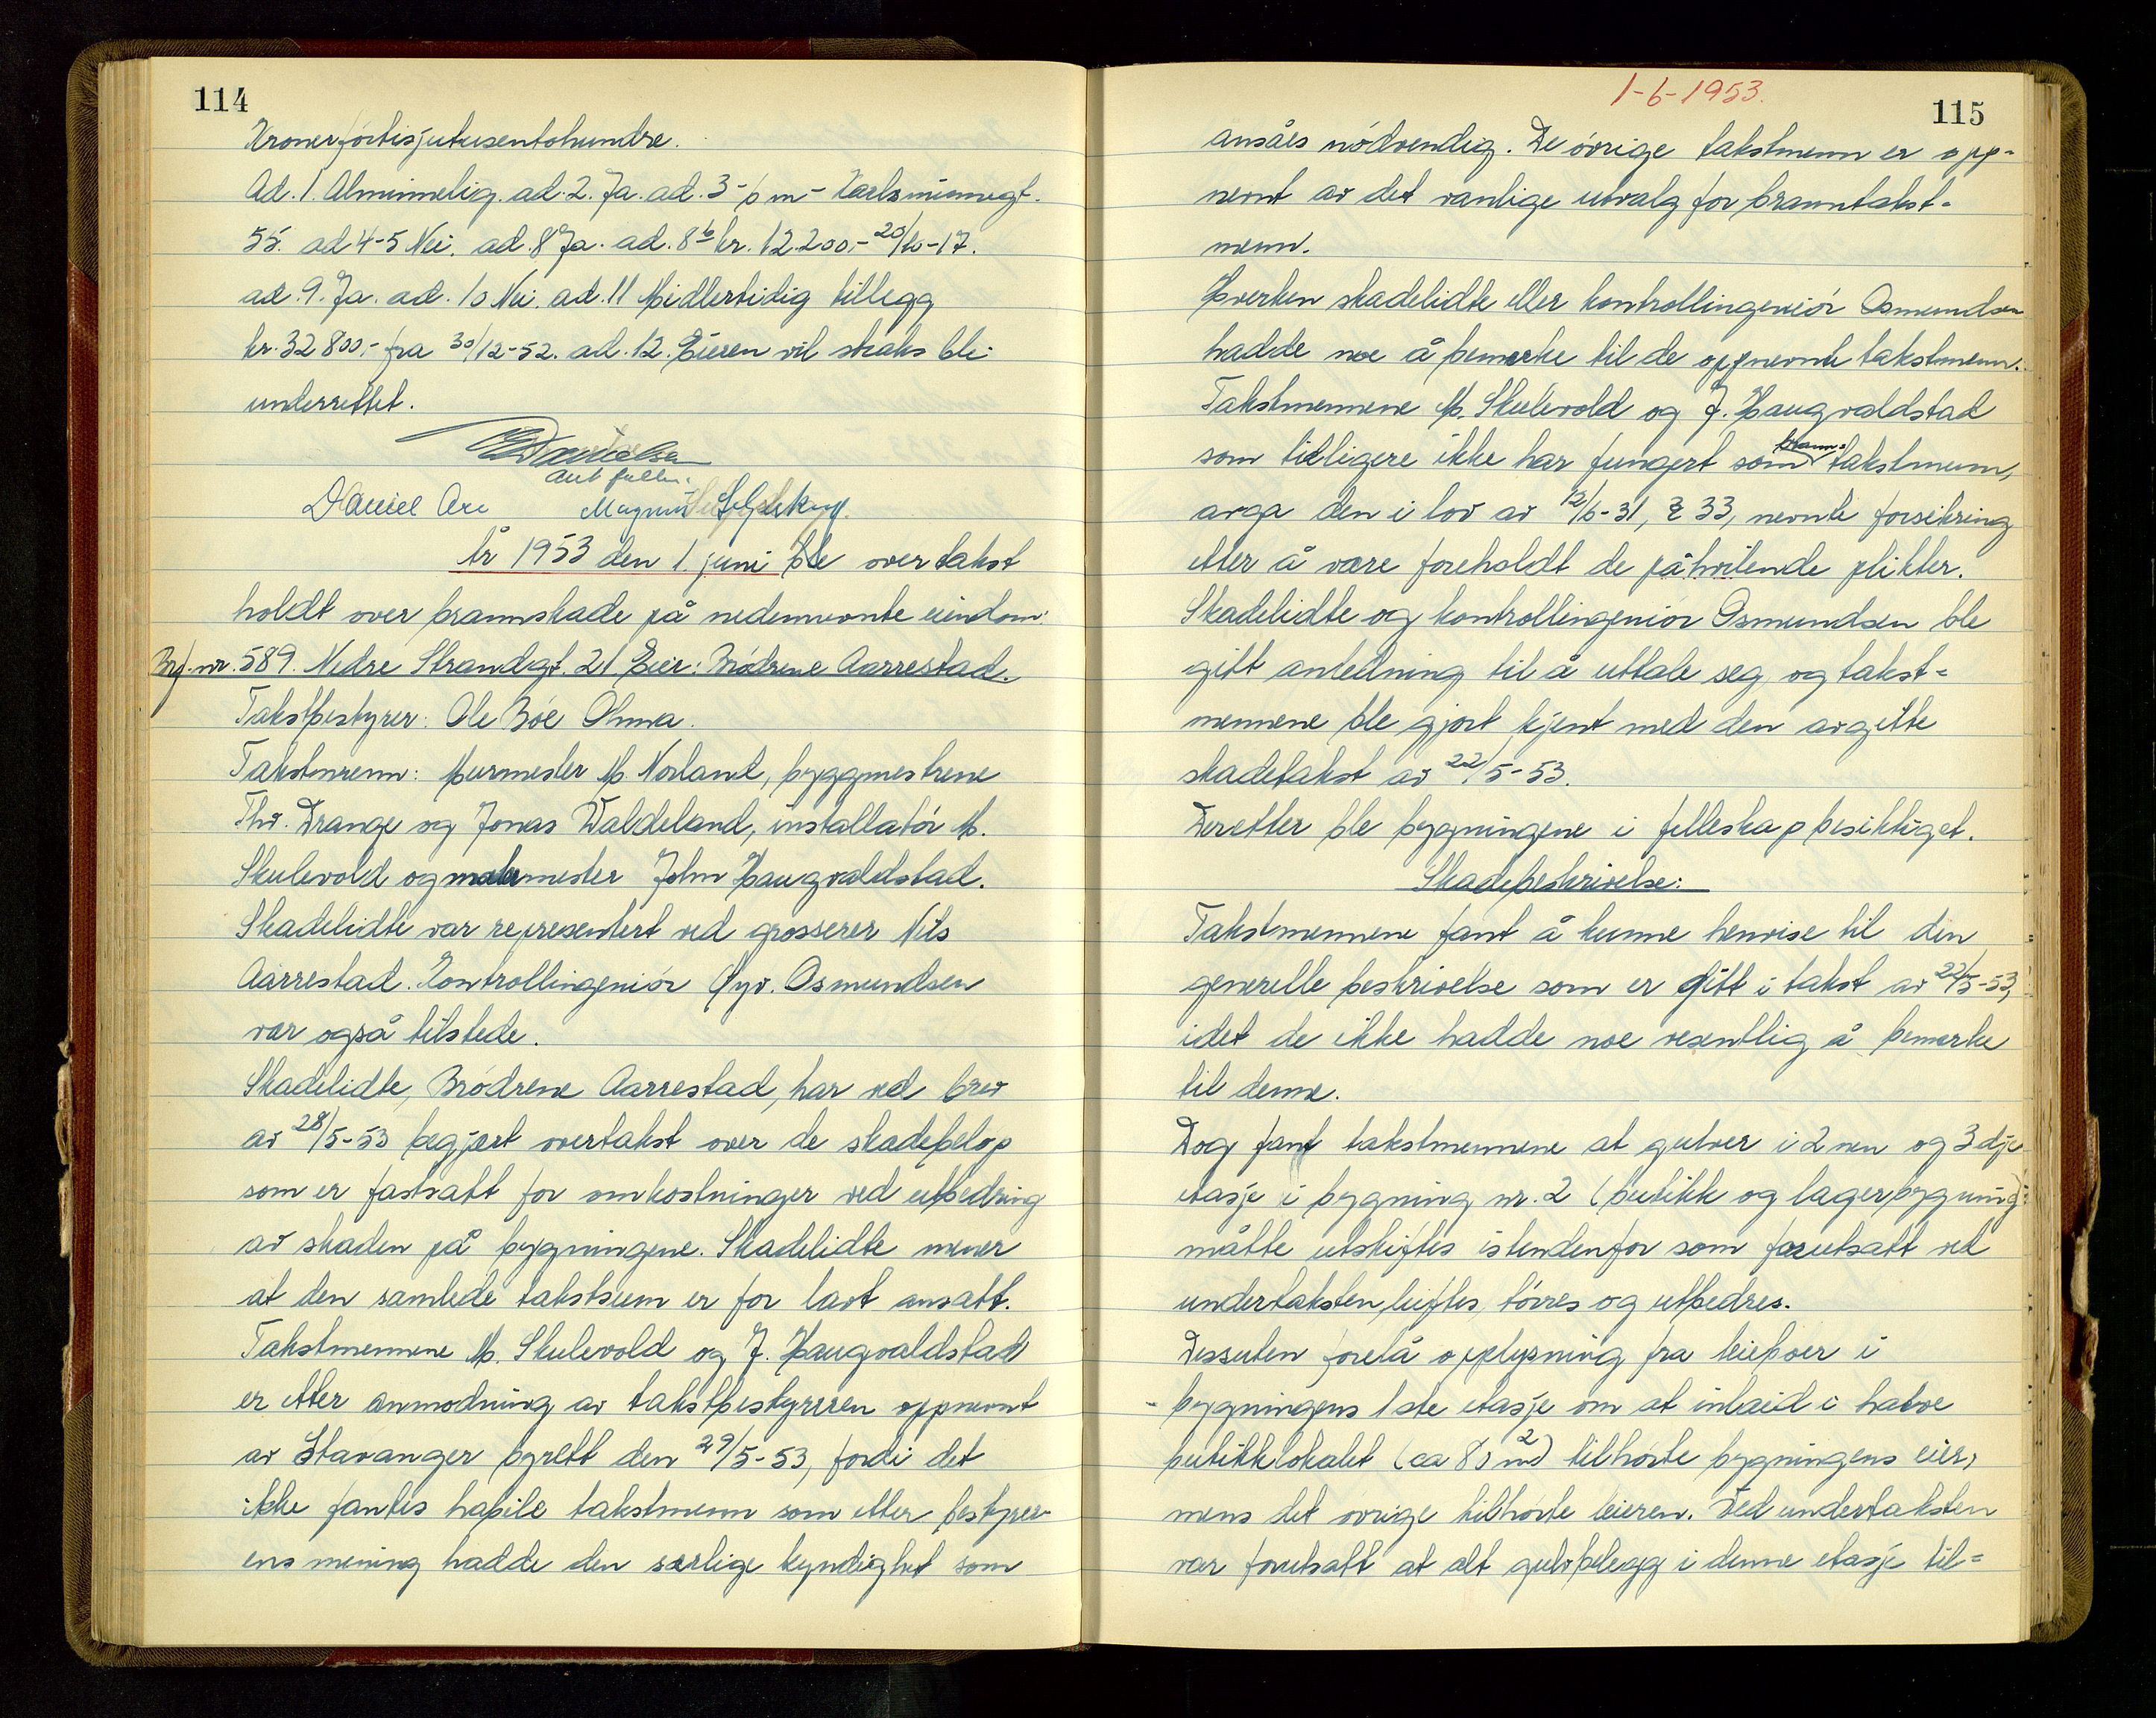 114
Kronerførtisjutusentohundre.
Ad. 1. Alminnelig. ad. 2. Ja. ad. 3 - 6 m - Karlsminnegt.
55. ad 4-5 Nei. ad. 8 Ja. ad. 8 b kr. 12.200,- 20/10-17.
ad. 9. Ja. ad. 10 Nei. ad. 11 Midlertidig tillegg
kr. 32 800,- fra 30/12-52. ad. 12. Eieren vil straks bli
underrettet.
Daniel
Magnus
År 1953 den 1. juni ble overtakst
holdt over brannskade på nedennevnte eiendom:
Brf.nr. 589. Nedre Strandgt. 21 Eier: Brødrene Aarrestad.
Takstbestyrer: Ole Bøe Ohma.
Takstmenn: Murmester M. Norland, byggmestrene
Thv. Drange og Jonas Waldeland, installatør M.
Skulevold og malermester John Haugvaldstad.
Skadelidte var representert ved grosserer Nils
Aarrestad. Kontrollingeniør Øyv. Osmundsen
var også tilstede.
Skadelidte, Brødrene Aarrestad, har ved brev
av 28/5-53 begjært overtakst over de skadebeløp
som er fastsatt for omkostninger ved utbedring
av skaden på bygningene. Skadelidte mener
at den samlede takstsum er for lavt ansatt.
Takstmennene M. Skulevold og J. Haugvaldstad
er etter anmodning av takstbestyreren oppnevnt
av Stavanger byrett den 29/5-53, fordi det
ikke fantes habile takstmenn som etter bestyrer-
ens mening hadde den særlige kyndighet som
1-6-1953.
115
ansåes nødvendig. De øvrige takstmenn er opp-
nevnt av det vanlige utvalg for branntakst-
menn.
Hverken skadelidte eller kontrollingeniør Osmundsen
hadde noe å bemerke til de oppnevnte takstmenn.
Takstmennene M. Skulevold og J. Haugvaldstad
som tidligere ikke har fungert som brann- takstmenn,
avga den i lov av 12/6-31, § 33, nevnte forsikring
etter å være foreholdt de påhvilende plikter.
Skadelidte og kontrollingeniør Osmundsen ble
gitt anledning til å uttale seg og takst-
mennene ble gjort kjent med den avgitte
skadetakst av 22/5-53.
Deretter ble bygningene i felleskap besiktiget.
Skadebeskrivelse:
Takstmennene fant å kunne henvise til den
generelle beskrivelse som er gitt i takst av 22/5-53,
idet de ikke hadde noe vesentlig å bemerke
til denne.
Dog fant takstmennene at gulver i 2nen og 3dje
etasje i bygning nr. 2 (butikk og lagerbygning)
måtte utskiftes istedenfor som forutsatt ved
undertaksten, løftes, tørres og utbedres.
Dessuten forelå opplysning fra leieboer i
bygningens 1ste etasje om at inlaid i halve
butikklokalet (ca 80 m2) tilhørte bygningens eier,
mens det øvrige tilhørte leieren. Ved undertaksten
var forutsatt at alt gulvbelegg i denne etasje til-